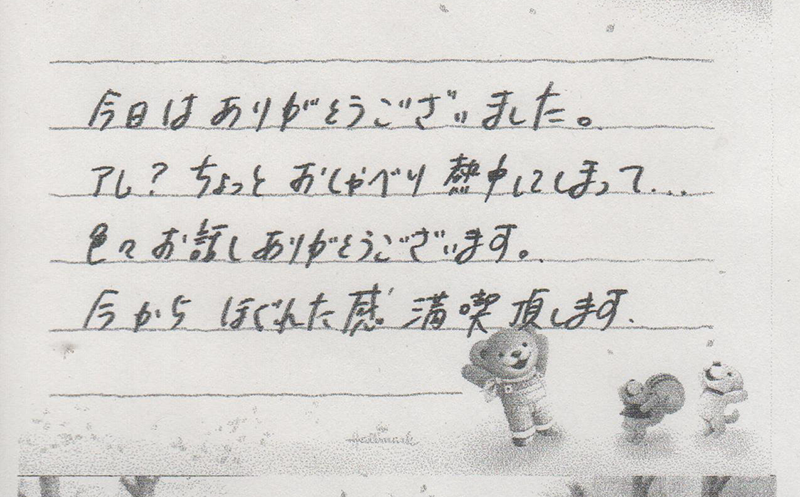 今日はありがとうございました。
アレ？ちょっとおしゃべり熱中してしまって...
色々お話しありがとうございます。
今からほぐれた感満喫頂します.
Hallmark